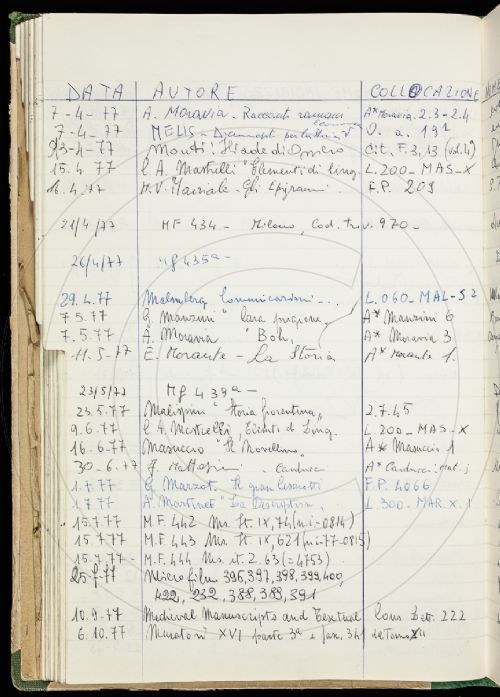 DATA AUTORE COLLOCAZIONE
7-4-77 A. Moravia - Racconti romani A* Moravia. 2.3-2.4
7-4-77 MELIS - O. a. 191
23-4-77 Monti: Iliade di Omero Cit. F. 3, 13 (vol. 4)
15.4.77 G.A. Mastrelli "Elementi di ling. L.200-MAS-X
16.4.77 M.V. Marziale - Gli Epigrammi F.P. 209
21/4/77 MF 434 - Milano, Cod. Triv. 970 -
26/4/77 Mf 435a -
29.4.77 Malmberg Comunicazioni... L.060-MAL-52
7.5.77 G. Manzini " Cara prigione, A* Manzini 6
7.5.77 A. Moravia " Boh, A* Moravia 3
11.5-77 E. Morante - La Storia A* Morante 1.
23/5/77 Mf 439a -
23.5.77 Malispini "Storia fiorentina, 2.7.45
9.6.77 G.A. Mastrelli, Elementi di Ling. L.200-MAS-X
16.6.77 Masuccio "Il Novellino, A* Masuccio 1
30-6.77 - Carducci A* Carducci:
1.7.77 G. Marzot. Il gran F.P. 4066
1.7.77 A. Martinet "La Description, L.300-MAR.X.1
15.7.77 M.F. 442 Ms. It. IX, 74 (n.i-0814)
15.7.77 M.F. 443 Ms. It. IX, 621 (n.i-77-0815)
15.7.77 - M.F. 444 Ms. it. Z. 63 (=4753)
25-7-77 Microfilm 396, 397, 398, 399, 400,
422, 232, 388, 389, 391
10.9.77 Medieval Manuscripts and Textual Cons. Lett. 222
6.10.77 Muratori XVI parte 3a e fasc. del Tomo XII